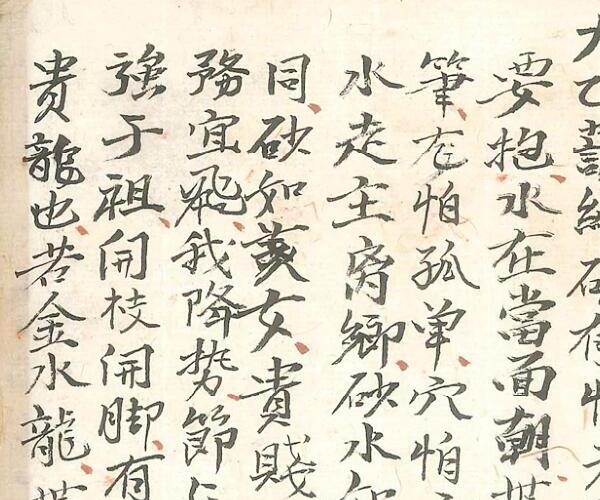 砂有情
要抱水在當面朝
筆龙怕孤单穴怕
水走主离鄉砂水如
同砂如美女貴賤
務宜飛我降势節
強于祖開枝開脚有
貴龍也若金水龍